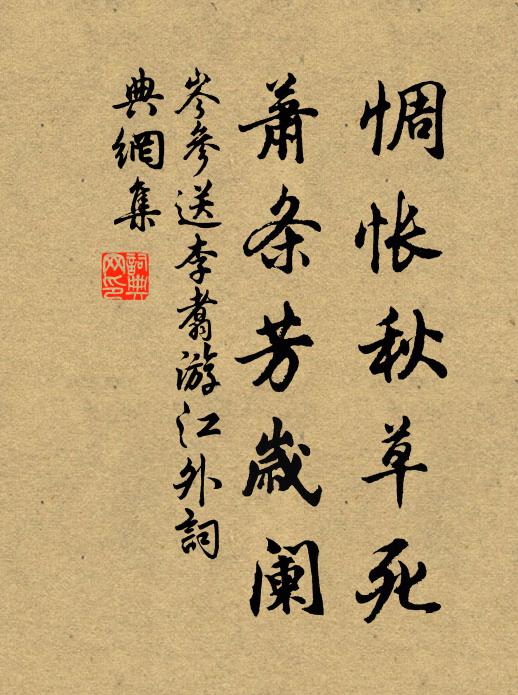 惆怅秋草死
萧条芳岁阑
岑參送李翥游江外詞
典網集
詞典
网印